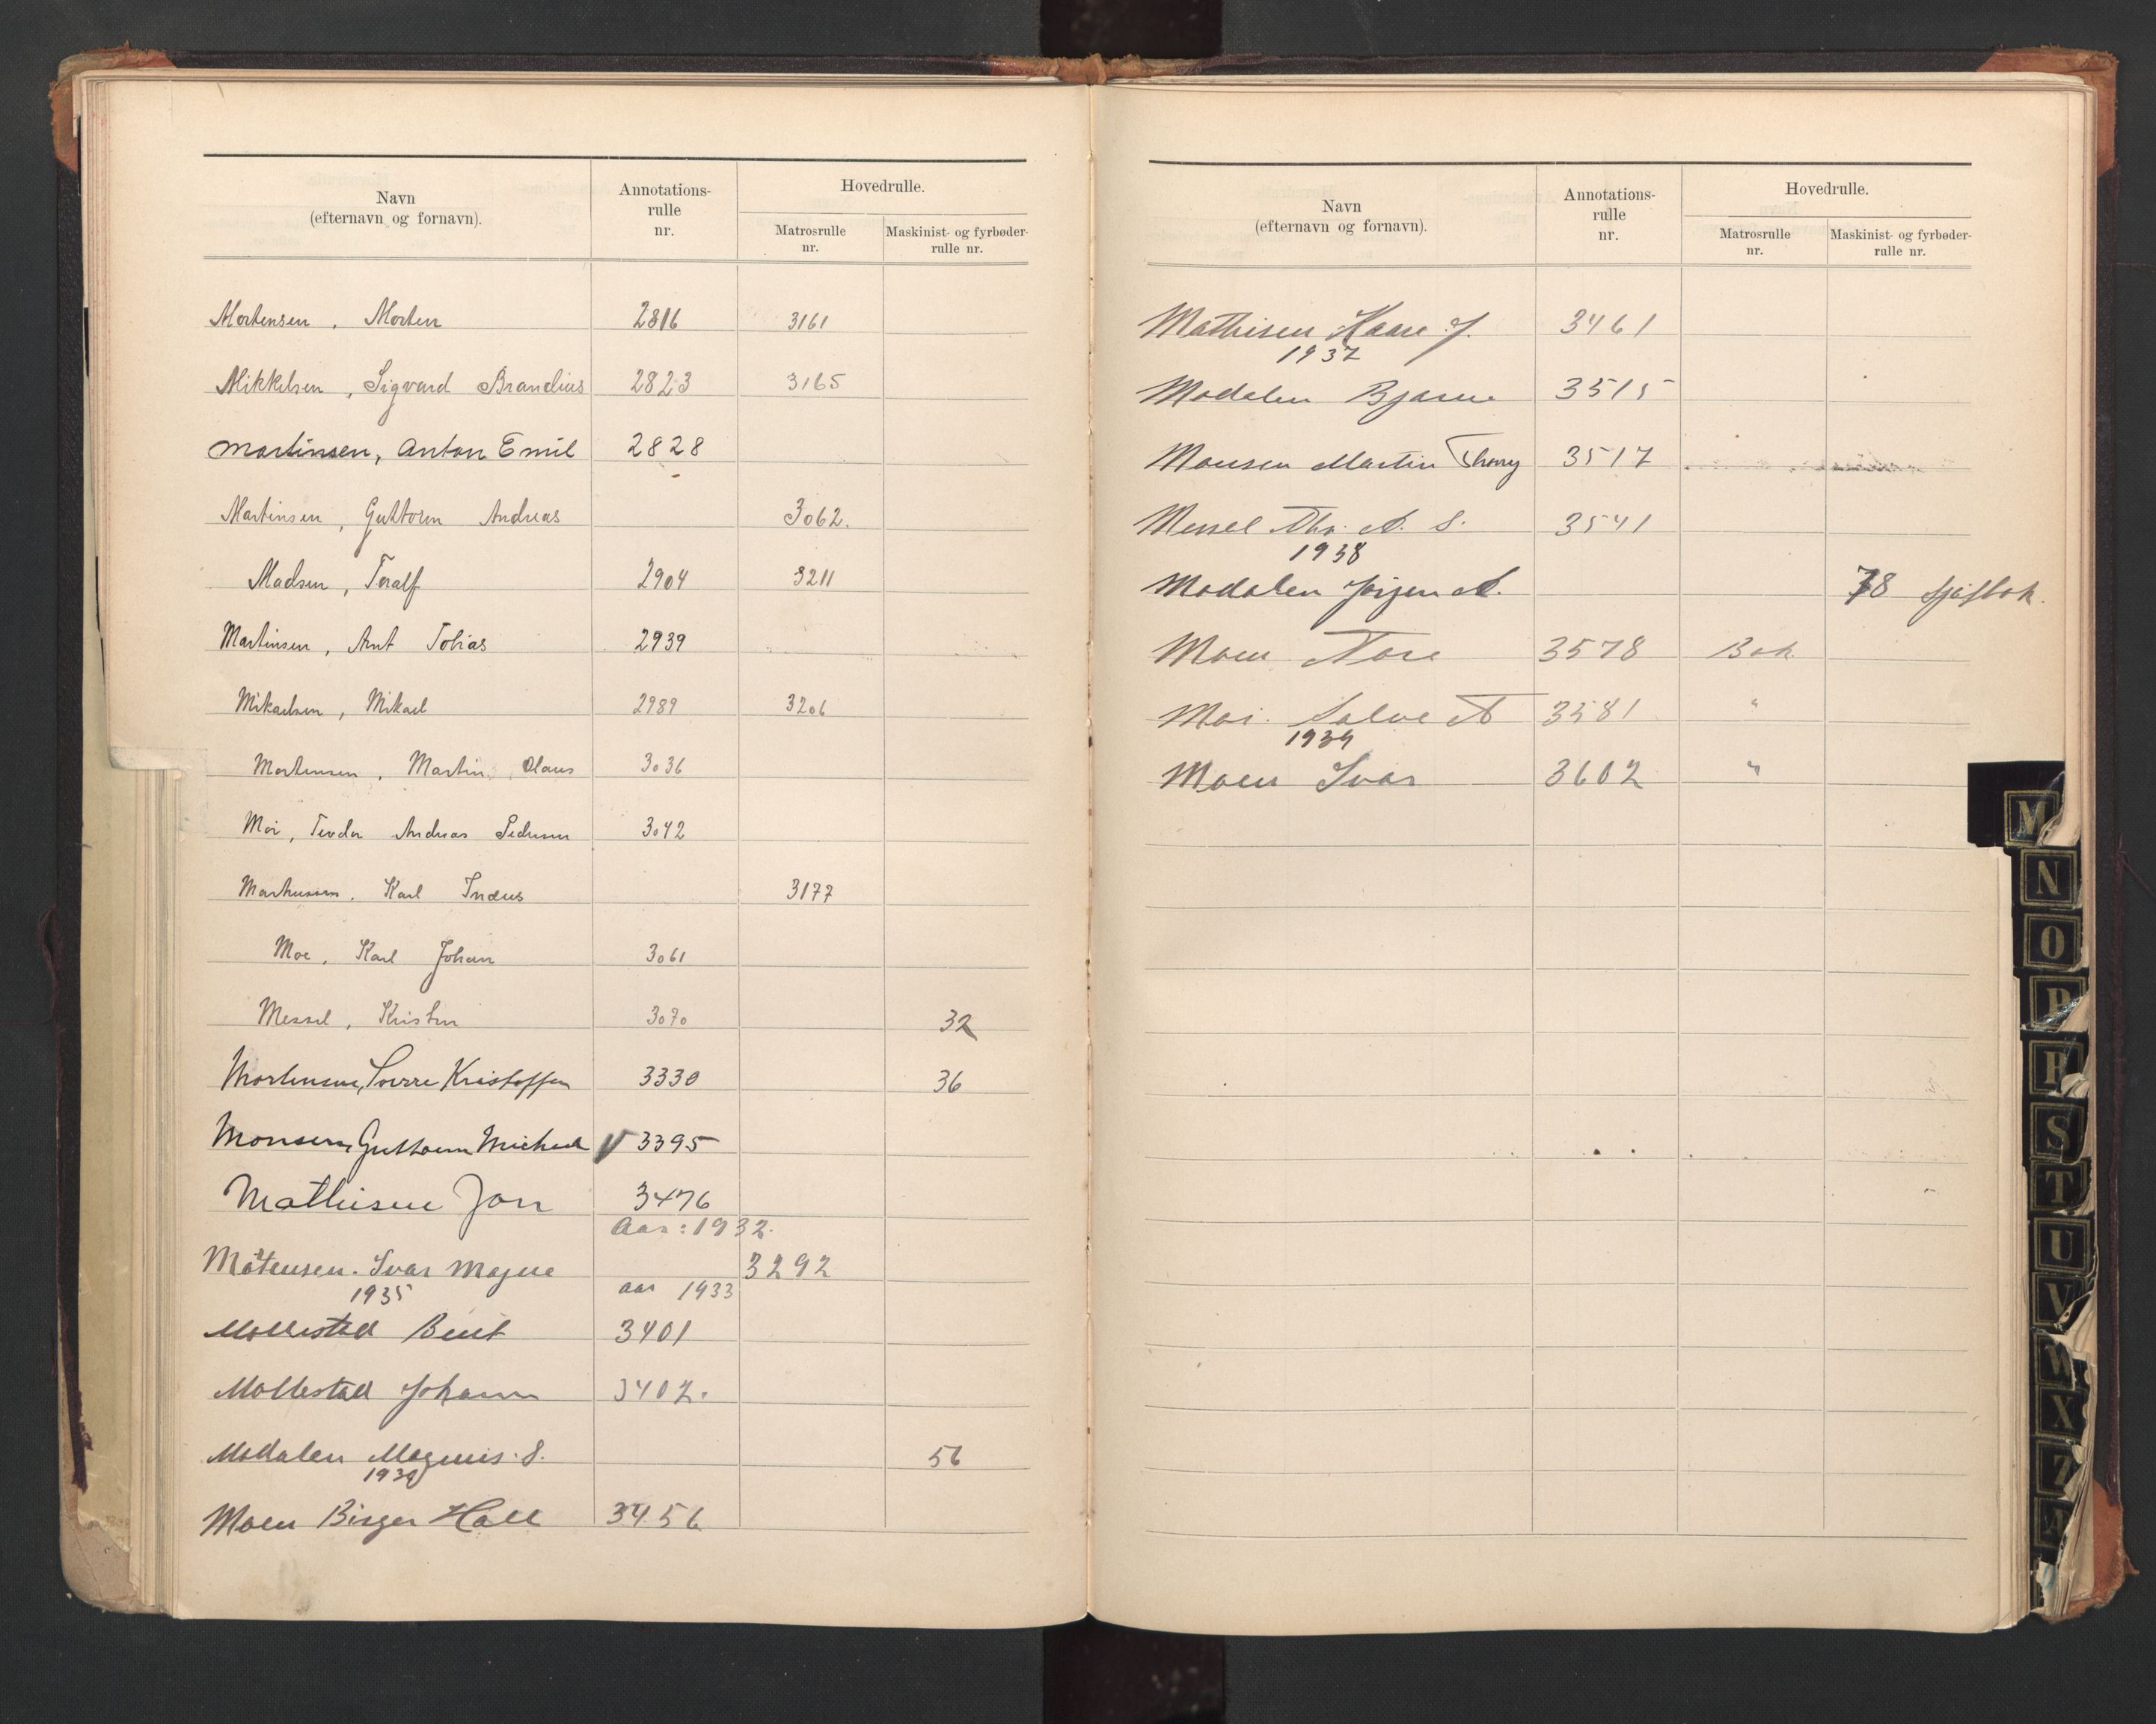 Navn
(efternavn og fornavn).
Annotations-
rulle
nr.
Hovedrulle.
Matrosrulle
nr.
Maskinist- og fyrbøder-
rulle nr.
Mortensen, Morten 2816 3161
Mikkelsen, Sigvard Brandius 2823 3165
Martinsen, Anton Emil 2828
Martinsen, Guttorm Andreas 3062.
Madsen, Toralf 2904 3211
Martinsen, Arnt Tobias 2939
Mikaelsen, Mikael 2989 3206
Mortensen, Martin Olaus 3036
Moi, Teodor Andreas Pedersen 3042
Markussen, Karl Indus 3177
Moe, Karl Johan 3061
Messel, Kristen 3070 32
Mortensen, Sverre Kristoffer 3330 36
Monsen, Guttorm Michael V 3395
Mathisen Jon 3476
Aar: 1932.
Mårtensen. Ivar Magne 3292
1935 aar 1933
Mollestad Berit 3401
Mollestad Johann 3402.
Modalen Magnus. S. 56
Moen Birger Hall 3456
Navn
(efternavn og fornavn).
Annotations-
rulle
nr.
Hovedrulle.
Matrosrulle
nr.
Maskinist- og fyrbøder-
rulle nr.
Mathisen Kaare J. 3461
1937
Modalen Bjarne 3515
Monsen Martin Thony 3517
Messel Chr. A. S. 3541
1938
Modalen Jørgen A. 78 Sjøfbok.
Moen Tore 3578 Bok
Moi. Salve A 3581 "
1939
Moen Ivar 3602 "
M
N
O
P
R
S
T
U
V
W
X
Z